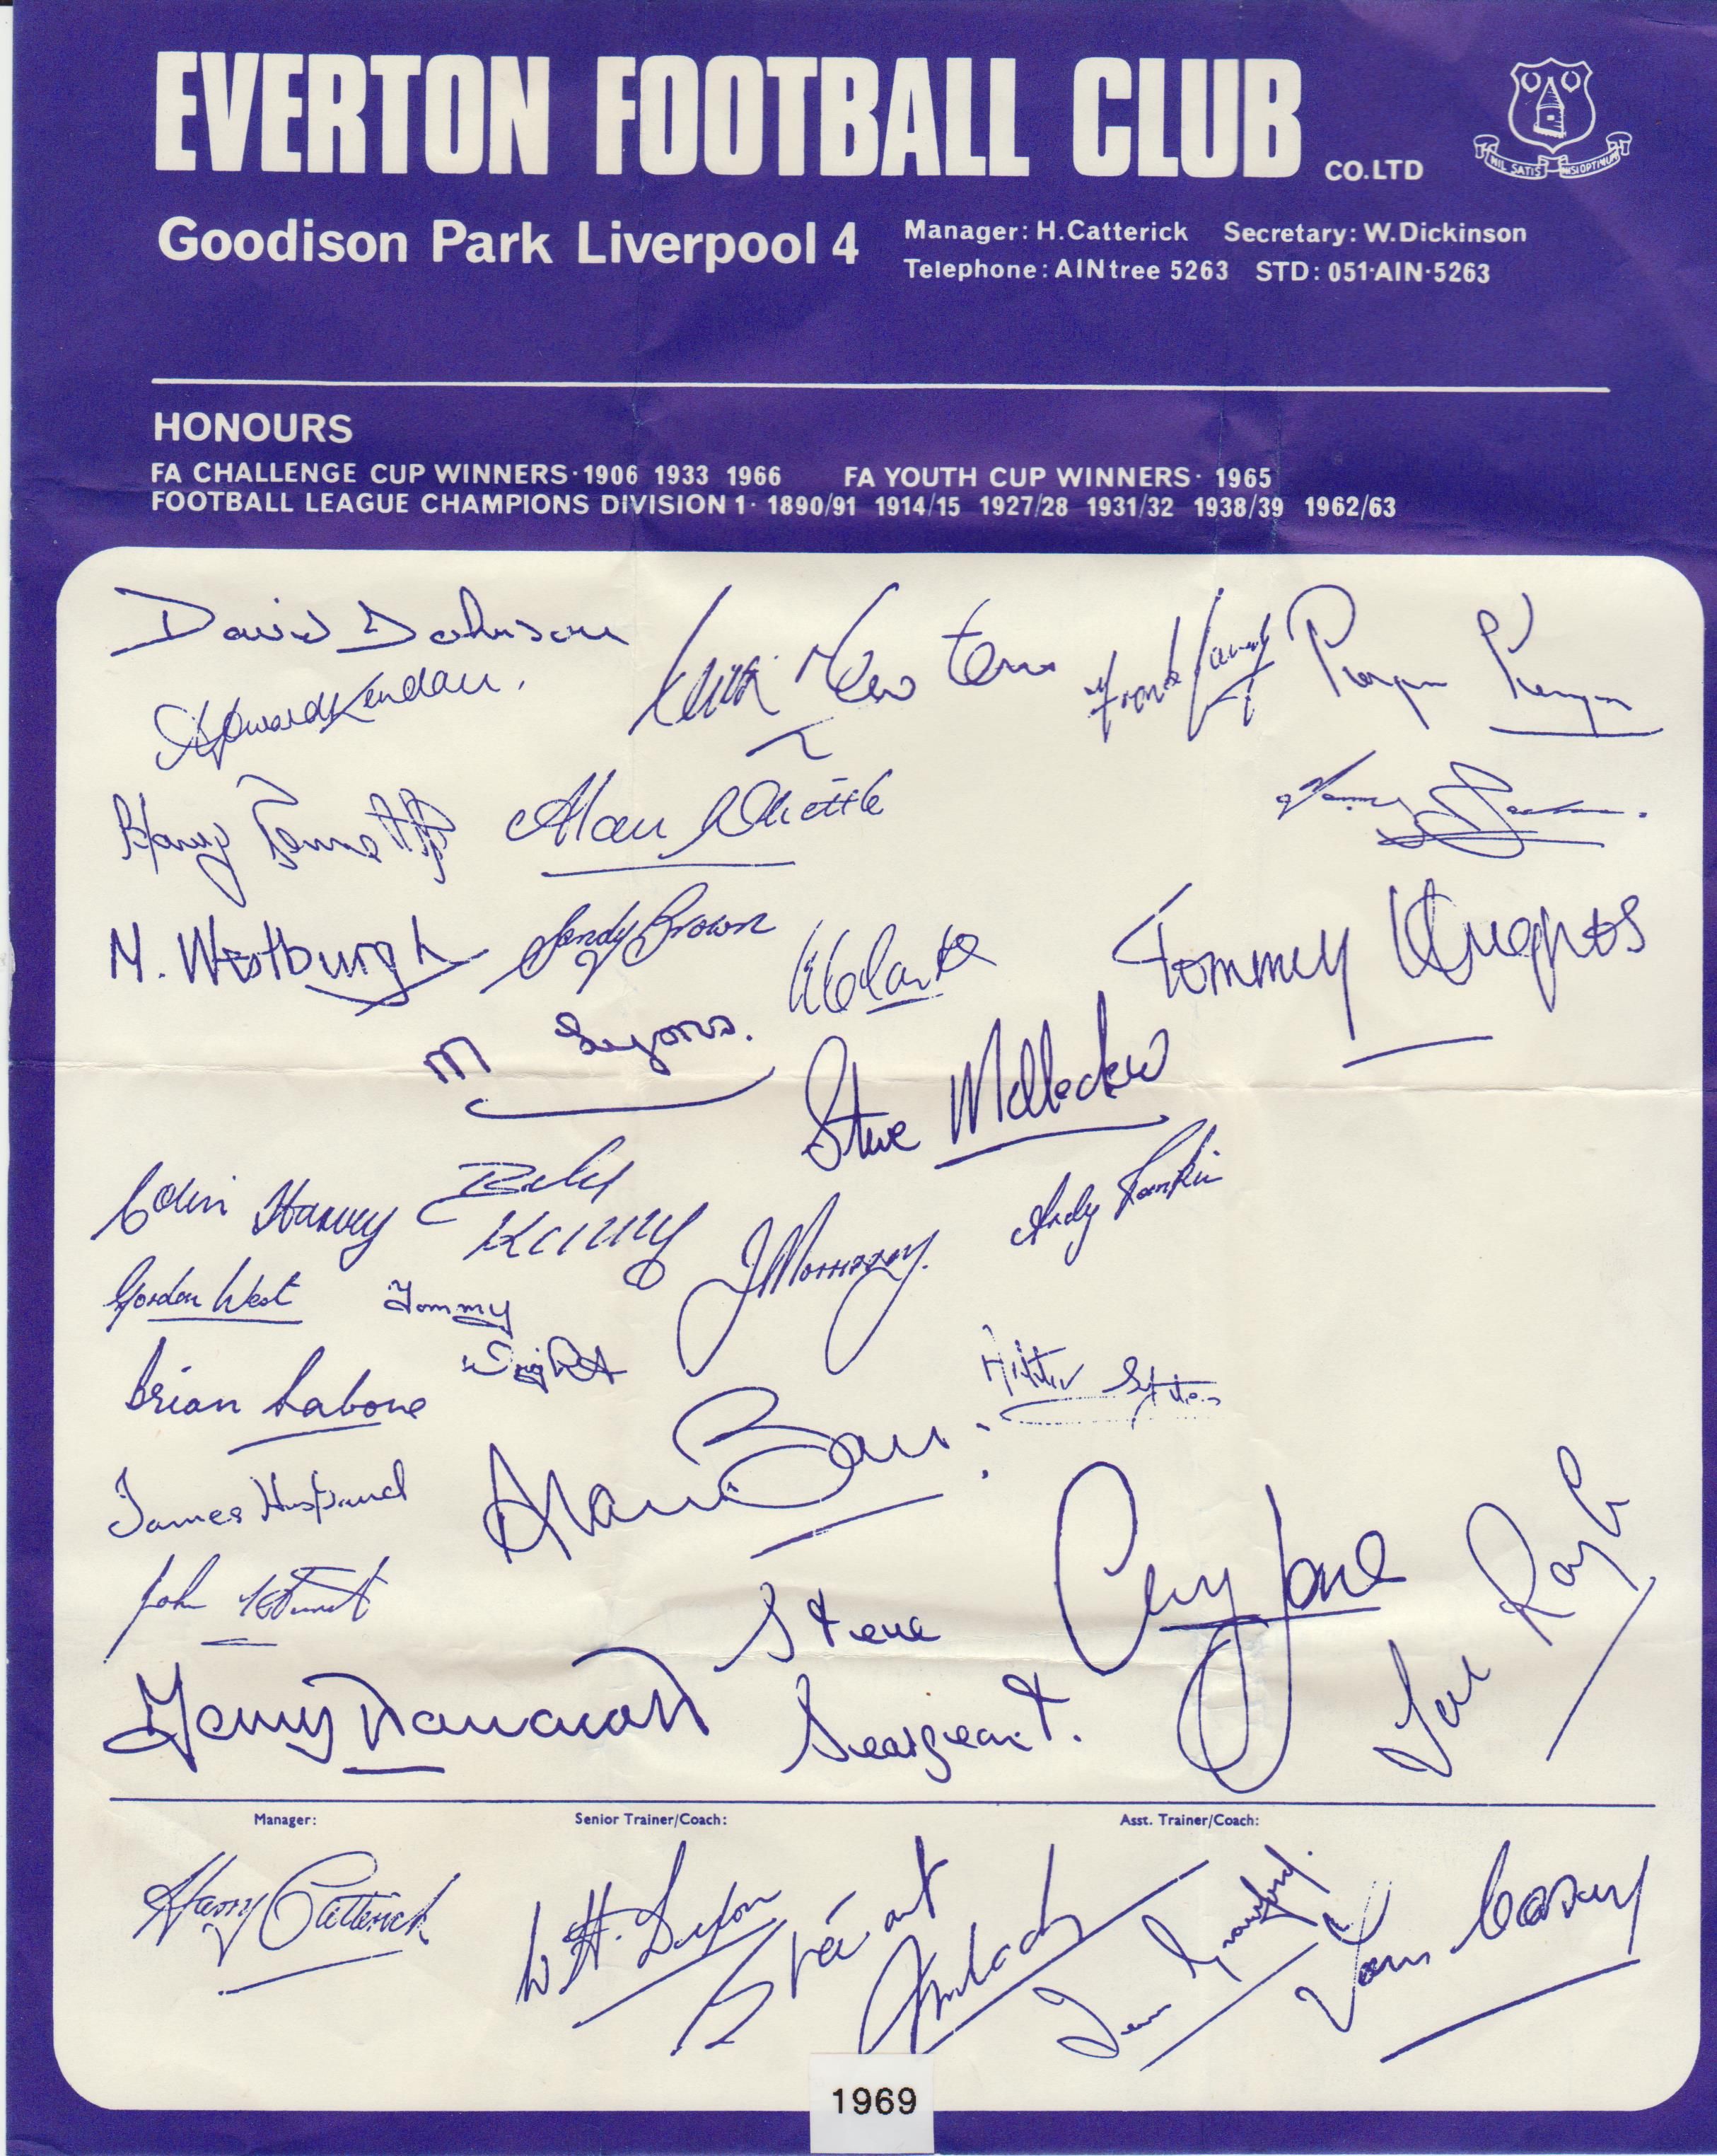 EVERTON FOOTBALL CLUB CO.LTD
NIL SATIS NISI OPTIMUM
Goodison Park Liverpool 4
Manager: H.Catterick Secretary: W.Dickinson
Telephone: AINtree 5263 STD: 051·AIN·5263
HONOURS
FA CHALLENGE CUP WINNERS·1906 1933 1966 FA YOUTH CUP WINNERS· 1965
FOOTBALL LEAGUE CHAMPIONS DIVISION 1· 1890/91 1914/15 1927/28 1931/32 1938/39 1962/63
David Johnson
Howard Kendall.
Keith Newton
Frank
Roger Kenyon
Harry Bennett
Alan Whittle
Tommy Jackson.
M. Westburgh
Sandy Brown
W Clarke
Tommy Hughes
M Lyons.
Steve
Colin Harvey
Billy
Kenny
J Morrissey.
Andy Rankin
Gordon West
Tommy
Wright
Brian Labone
James Husband
Alan Ball
John Hurst
Steve
Seargeant.
Gerry
Terry Darracott
Manager:
Senior Trainer/Coach:
Asst. Trainer/Coach:
Harry Catterick
W H. Dixon
Stewart Imlach
Tom Casey
1969